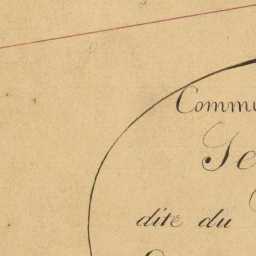 Commu
Se
dite du